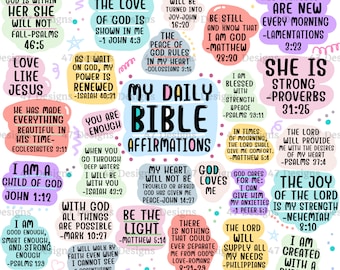 GOD IS
WITHIN HER SHE
WILL NOT
FALL-PSALMS
46:5
THE LOVE
OF GOD IS
SHOWN IN ME
-1 JOHN 4:9
WILL BE
TURNED INTO
JOY-JOHN
16:20
BE STILL
AND KNOW THAT
I AM GOD
MATTHEW
28:20
ARE NEW
EVERY MORNING
-LAMENTATIONS
3:23
LOVE
LIKE
JESUS
AS I WAIT
ON GOD, MY
POWER IS
RENEWED
-ISAIAH 40:31
THE
PEACE OF
GOD RULES
IN MY HEART
-COLOSSIANS 3:15
I AM
BLESSED
WITH
STRENGTH
&PEACE
-PSALMS 29:11
SHE IS
STRONG
-PROVERBS
31:25
HE HAS MADE
EVERYTHING
BEAUTIFUL IN
HIS TIME-
ECCLESIASTES 3:11
YOU ARE
ENOUGH
MY DAILY
BIBLE
AFFIRMATIONS
IN TIMES
OF MOURNING,
THE LORD SHALL
GIVE ME COMFORT
-MATTHEW 5:4
THE LORD
WILL PROVIDE
ME WITH THE DESIRES
OF MY HEART
-PSALMS 37:4
WHEN YOU
GO THROUGH
DEEP WATERS
I WILL BE
WITH YOU
-ISAIAH 43:2
I AM A
CHILD OF GOD
JOHN 1:12
MY HEART
WILL NOT BE
TROUBLED OR AFRAID
GOD HAS GIVEN ME
PEACE-JOHN 14:27
GOD
LOVES
ME
GOD
CARES FOR
ME; I
CAN GIVE
HIM MY
ANXIETIES
-1 PETER 5:7
THE JOY
OF THE LORD
IS MY STRENGTH
-NEHEMIAH
8:10
WITH GOD
ALL THINGS
ARE POSSIBLE
-MARK 10:27
BE THE
LIGHT
MATTHEW 5:14
I AM GOOD
ENOUGH,
SMART ENOUGH,
AND STRONG
ENOUGH
-PSALMS
I WILL WALK BY
FAITH EVEN WHEN
I CANNOT SEE
THERE IS
NOTHING THAT
COULD EVER
SEPARATE ME
FROM GOD'S
LOVE-ROMANS
THE LORD
WILL
SUPPLY ALL
MY NEEDS
-PHILIPPIANS
I AM
CREATED
WITH A